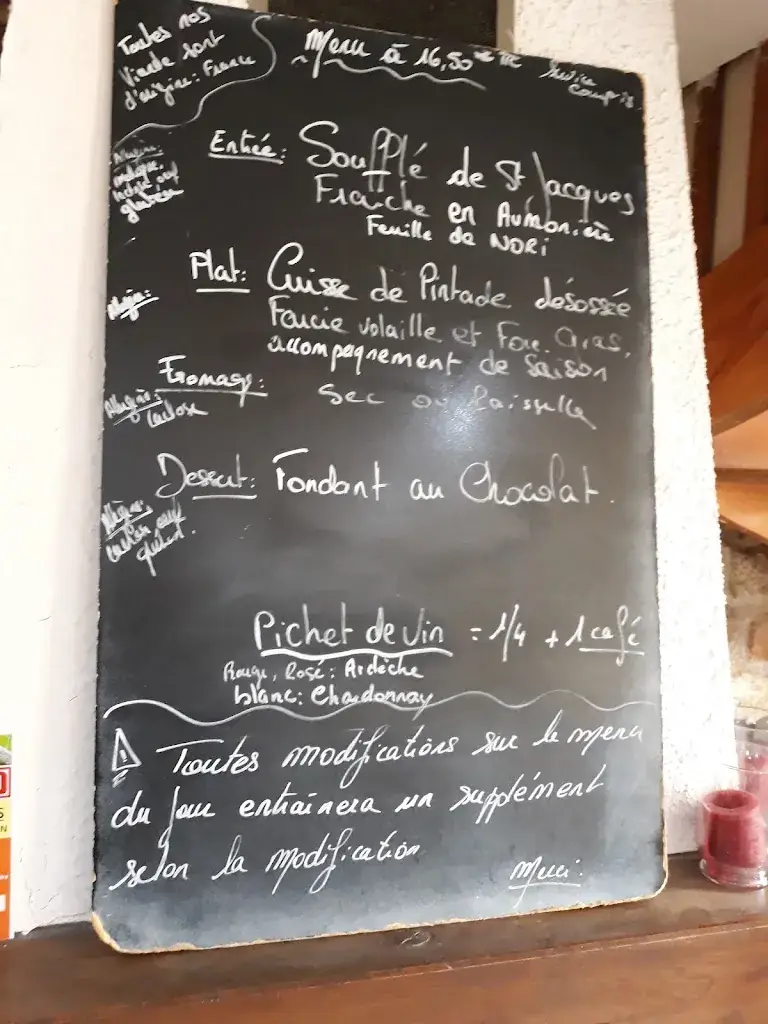 Toutes nos
Viande sont
d'origine: France
Menu à 16,50 € TTC
Service
compris
Entrée: Soufflé de St Jacques
Fraîche en Aumônière
Feuille de NORI
Plat: Cuisse de Pintade désossée
Farcie volaille et Foie Gras,
accompagnement de Saison
Fromage: Sec ou Faisselle
Allergène:
lactose
Dessert: Fondant au Chocolat.
Pichet de vin = 1/4 + 1 café
Rouge, Rosé: Ardèche
blanc: Chardonnay
Toutes modifications sur le menu
du jour entrainera un supplément
selon la modification
Merci.